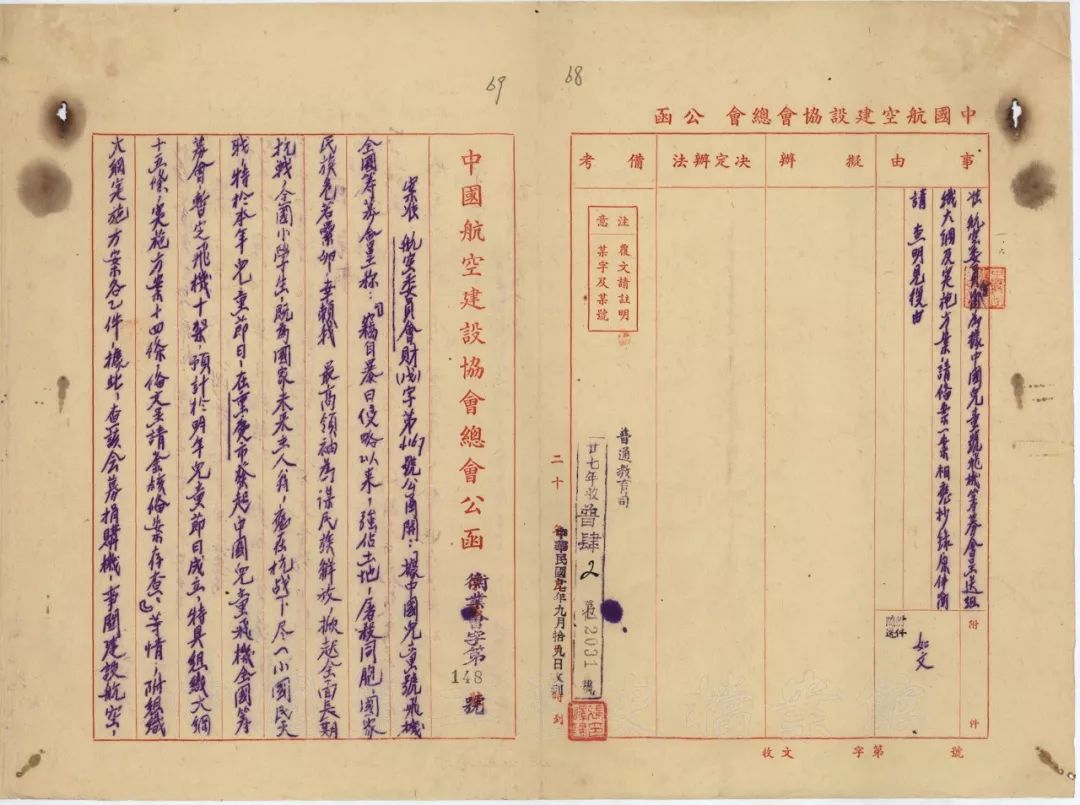 68
中國航空建設協會總會 公函
事由
擬辦
決定辦法
備考
准航空委員會函為據中國兒童號飛機籌募會呈送組
織大綱及實施方案請備案一案相應抄錄原件函
請 查明見復由
附件
如文
注意
覆文請註明
某字及某號
普通教育司
廿七年收
普肆
2
2031
號
中華民國廿七年九月拾九日
時到
收文 字第 號
69
中國航空建設協會總會公函
衡業
字第
148
號
案准 航空委員會財(戊)字第4167號公函開：「據中國兒童號飛機
全國籌募會呈稱：『竊自暴日侵略以來，強佔土地，屠殺同胞，國家
民族危若纍卵，幸賴我 最高領袖為謀民族解放，掀起全面長期
抗戰，全國小學生，既為國家未來主人翁，應在抗战下尽一小國民天
職，特於本年兒童節日，在重慶市發起中國兒童飛機全國籌
募會，暫定飛機十架，預計於明年兒童節日成立，特具組織大綱
十五條，实施方案十四條，備文呈請鉴核備案存查』等情，附組織
大綱实施方案各乙件，據此，查該会募捐購機，事関建設航空，